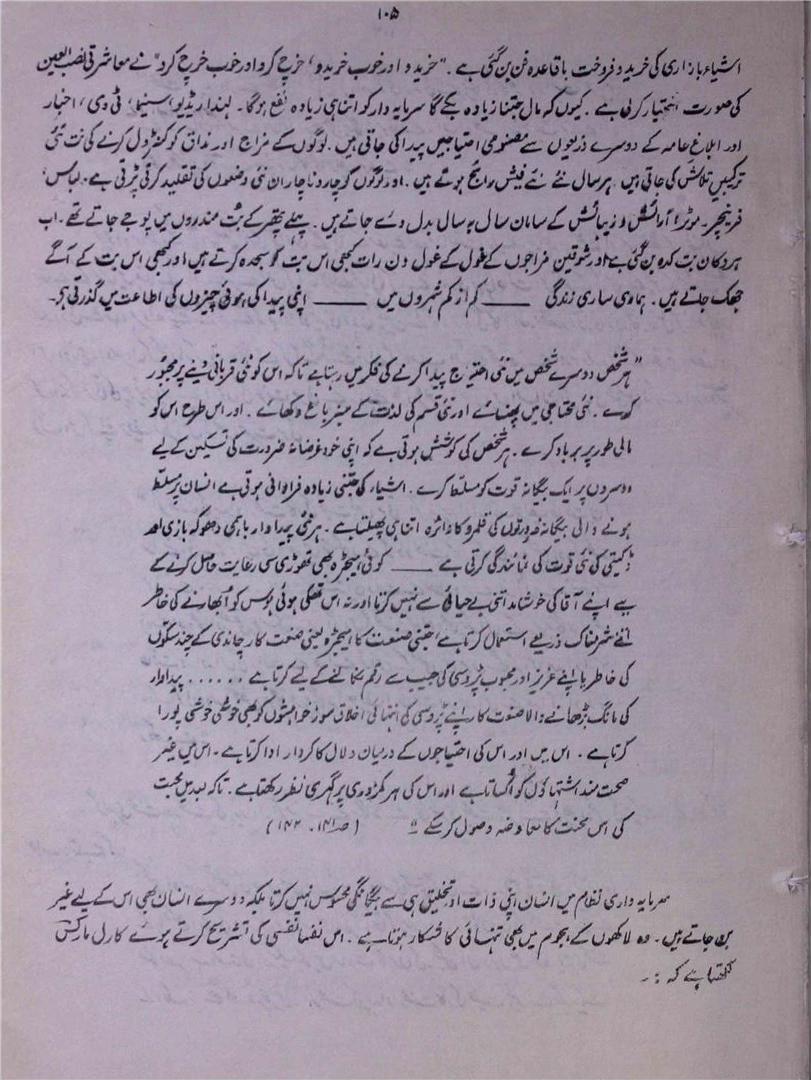 ۱۰۵
اشیاء بازاری کی خرید و فروخت باقاعدہ فن بن گئی ہے ۔ "خریدو اور خوب خریدو، خرچ کرو اور خوب خرچ کرو" نے معاشرتی نصب العین
کی صورت اختیار کرلی ہے ۔ کیوں کہ مال جتنا زیادہ بکے گا سرمایہ دار کو اتنا ہی زیادہ نفع ہوگا ۔ لہٰذا ریڈیو، سنیما، ٹی وی، اخبار
اور ابلاغ عامہ کے دوسرے ذریعوں سے مصنوعی احتیاجیں پیدا کی جاتی ہیں ۔ لوگوں کے مزاج اور مذاق کو کنٹرول کرنے کی نت نئی
ترکیبیں تلاش کی جاتی ہیں ۔ ہر سال نئے نئے فیشن رائج ہوتے ہیں ۔ اور لوگوں کو چار و ناچار ان نئی وضعوں کی تقلید کرنی پڑتی ہے ۔ لباس،
فرنیچر ۔ موٹر، آرائش و زیبائش کے سامان سال بہ سال بدل دے جاتے ہیں ۔ پہلے پتھر کے بُت مندروں میں پوجے جاتے تھے ۔ اب
ہر دکان بت کدہ بن گئی ہے اور شوقین مزاجوں کے غول کے غول دن رات کبھی اس بت کو سجدہ کرتے ہیں اور کبھی اس بت کے آگے
جھک جاتے ہیں ۔ ہماری ساری زندگی ــــــ کم از کم شہروں میں ــــــ اپنی پیدا کی ہوئی چیزوں کی اطاعت میں گذرتی ہے ۔
"ہر شخص دوسرے شخص میں نئی احتیاج پیدا کرنے کی فکر میں رہتا ہے تاکہ اس کو نئی قربانی دینے پر مجبور
کرے ۔ نئی محتاجی میں پھنسائے اور نئی قسم کی لذت کے سبز باغ دکھائے ۔ اور اس طرح اس کو
مالی طور پر برباد کرے ۔ ہر شخص کی کوشش ہوتی ہے کہ اپنی خود غرضانہ ضرورت کی تسکین کے لیے
دوسروں پر ایک بیگانہ قوت کو مسلط کرے ۔ اشیاء کی جتنی زیادہ فراوانی ہوتی ہے انسان پر مسلط
ہونے والی بیگانہ ضرورتوں کی قلمرو کا دائرہ اتنا ہی پھیلتا ہے ۔ ہر نئی پیداوار باہمی دھوکہ بازی اور
ڈکیتی کی نئی قوت کی نمائندگی کرتی ہے ــــــ کوئی ہیجڑہ بھی تھوڑی سی رعایت حاصل کرنے کے
لیے اپنے آقا کی خوشامد اتنی بے حیائی سے نہیں کرتا اور نہ اس تھکی ہوئی ہوس کو اُبھارنے کی خاطر
اتنے شرمناک ذریعے استعمال کرتا ہے جتنی صنعت کا ہیجڑہ یعنی صنعت کار چاندی کے چند سکوں
کی خاطر یا اپنے عزیز اور محبوب پڑوسی کی جیب سے رقم نکالنے کے لیے کرتا ہے ...... پیداوار
کی مانگ بڑھانے والا صنعت کار اپنے پڑوسی کی انتہائی اخلاق سوز خواہشوں کو بھی خوشی خوشی پورا
کرتا ہے ۔ اس میں اور اس کی احتیاجوں کے درمیان دلال کا کردار ادا کرتا ہے ۔ اس میں غیر
صحت مند اشتہاؤں کو اُکساتا ہے اور اس کی ہر کمزوری پر گہری نظر رکھتا ہے ۔ تاکہ بعد میں محبت
کی اس محنت کا معاوضہ وصول کر سکے ۔" (صہ ۱۴۱ ۔ ۱۴۲)
سرمایہ داری نظام میں انسان اپنی ذات اور تخلیق ہی سے بیگانگی محسوس نہیں کرتا بلکہ دوسرے انسان بھی اس کے لیے غیر
بن جاتے ہیں ۔ وہ لاکھوں کے ہجوم میں بھی تنہائی کا شکار ہوتا ہے ۔ اس نفسا نفسی کی تشریح کرتے ہوئے کارل مارکس
لکھتا ہے کہ :۔